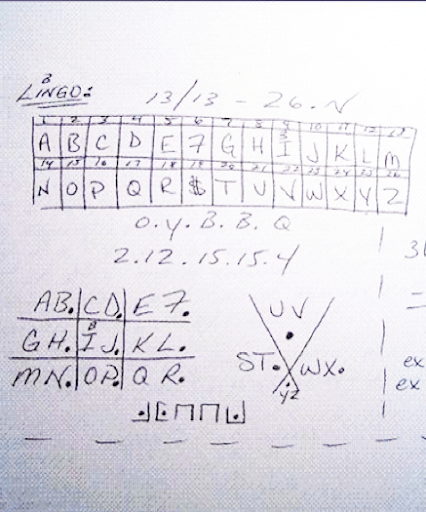 B
LINGO:
13/13 - 26. N
1 2 3 4 5 6 7 8 9 10 11 12 13
A B C D E 7 G H I J K L M
14 15 16 17 18 19 20 21 22 23 24 25 26
N O P Q R $ T U V W X Y Z
O. Y. B. B. Q
2.12.15.15.4
AB. CD. E 7.
GH. I J. KL.
MN. OP. Q R.
UV
ST. WX.
YZ
ex
ex